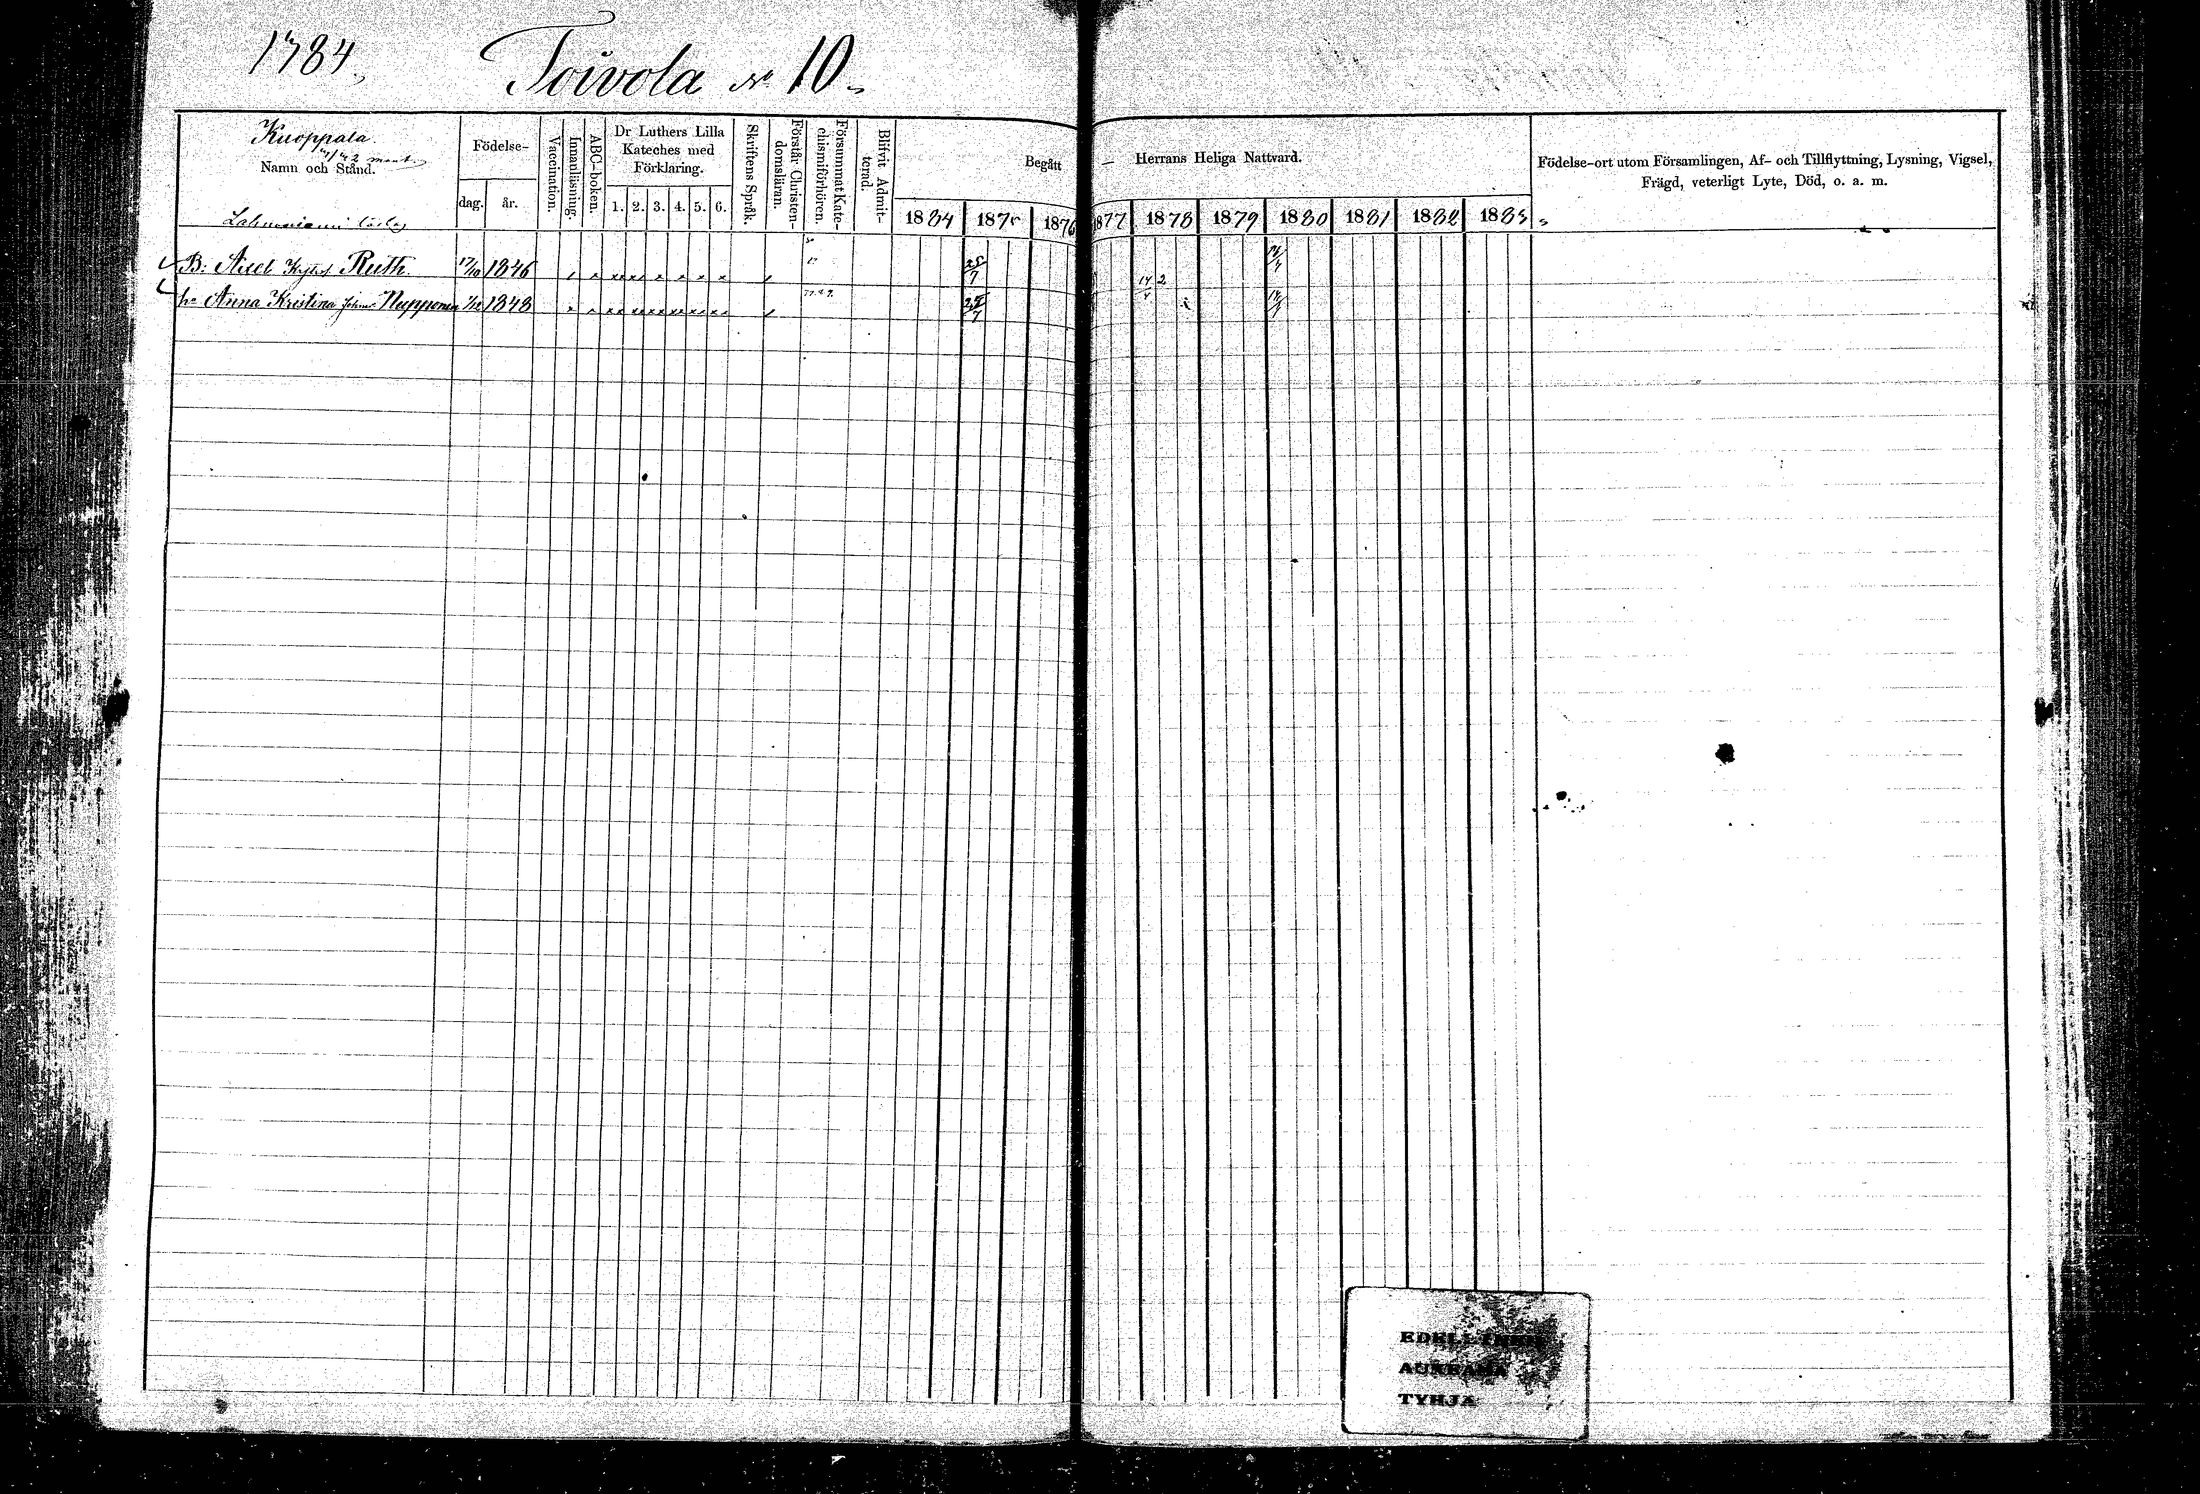 1784.
Toivola No 10.
Kuoppala.
Namn och Stånd.
Födelse-
dag.
år.
Vaccination.
Innanläsning.
ABC-boken.
Dr Luthers Lilla
Kateches med
Förklaring.
1. 2. 3. 4. 5. 6.
Skriftens Språk.
Förstår Christen-
domsläran.
Försummat Kate-
chismiförhören.
Blifvit Admit-
terad.
Begått
Herrans Heliga Nattvard.
1884 1875 1876 1877 1878 1879 1880 1881 1882 1883
Födelse-ort utom Församlingen, Af- och Tillflyttning, Lysning, Vigsel,
Frägd, veterligt Lyte, Död, o. a. m.
B: Axel Ruth. 17/10 1846 25/7 14 2
hu Anna Kristina Nupponen 1848 25/7
EDELLINEN
AUKEAMA
TYHJÄ